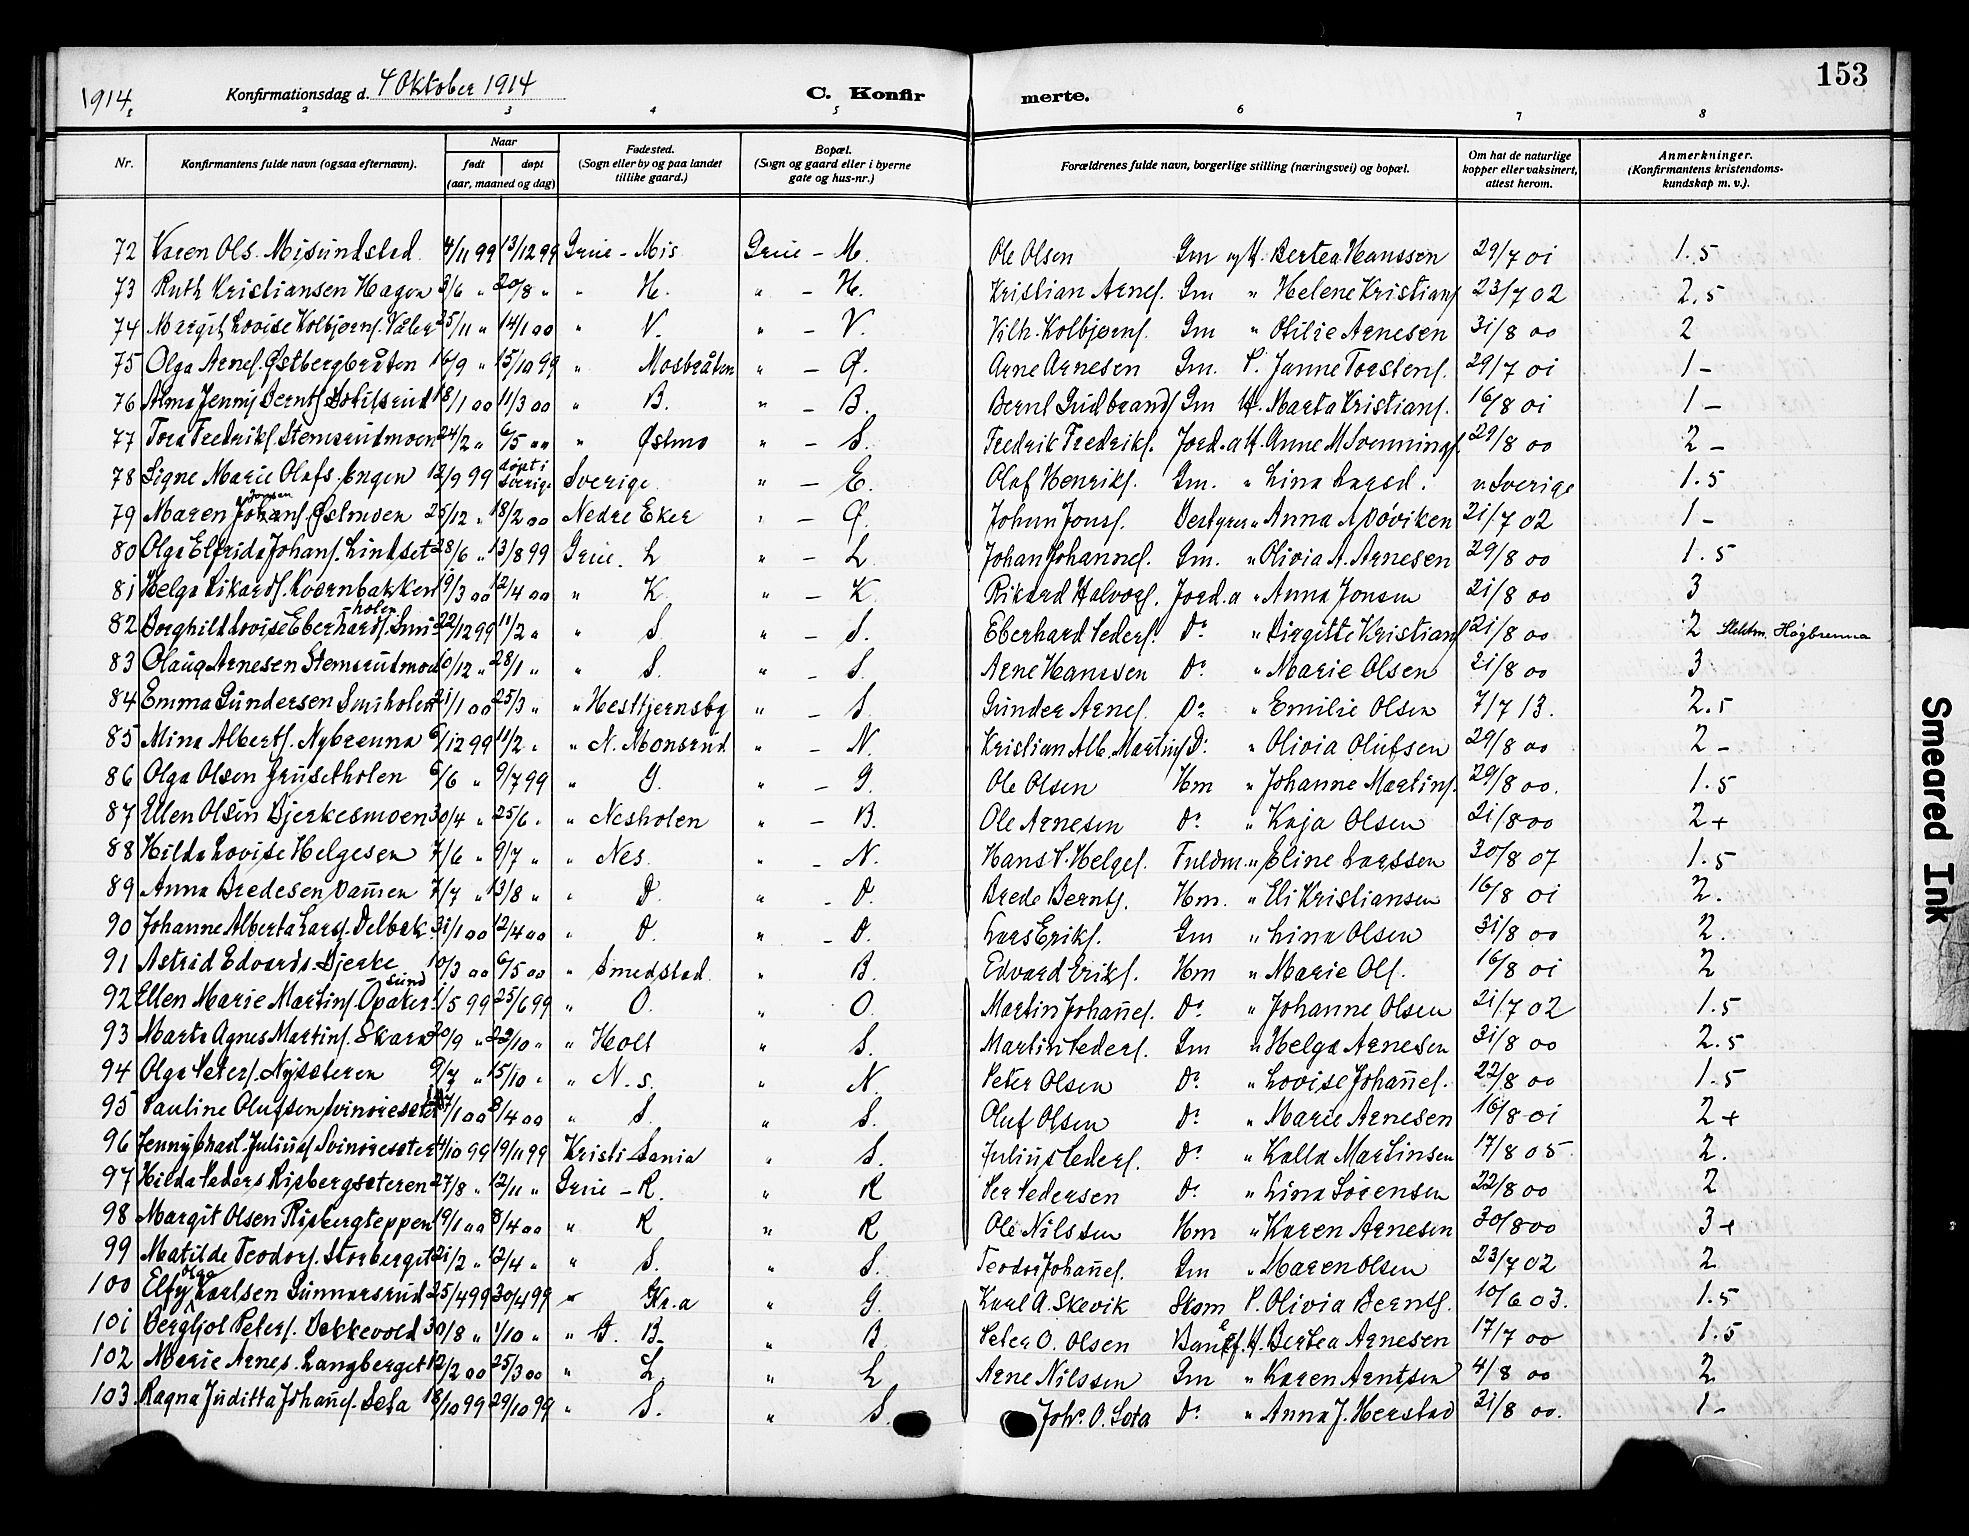 153
1914. Konfirmationsdag d. 4 Oktober 1914 C. Konfirmerte.
1 2 3 4 5 6 7 8
Nr. Konfirmantens fulde navn (ogsaa efternavn). Naar født døpt (aar, maaned og dag) Fødested. (Sogn eller by og paa landet tillike gaard.) Bopæl. (Sogn og gaard eller i byerne gate og hus-nr.) Forældrenes fulde navn, borgerlige stilling (næringsvei) og bopæl. Om hat de naturlige kopper eller vaksinert, attest herom. Anmerkninger. (Konfirmantens kristendomskundskap m. v.).
72 Karen Ols. Misundstad 4/11 99 13/12 99 Grue - Mis Grue - M. Ole Olsen Gm og H. Bertea Hanssen 29/7 01 1.5
73 Ruth Kristiansen Hagen 3/6 " 20/8 " " H. " - H. Kristian Arnes. Gm " Helene Kristians 23/7 02 2.5
74 Margit Lovise Kolbjørns. Våler 25/11 " 14/1 00 " V. " - V. Vilh. Kolbjørns. Gm " Otilie Arnesen 31/8 00 2
75 Olga Arnes. Østbergbråten 16/9 " 15/10 99 " Mosbråten " - Ø. Arne Arnesen Gm. P. Janne Torstens. 29/7 01 1 -
76 Alma Jenny Bernts 18/1 00 11/3 00 " B. " - B. Bernt Gudbrands Gm H. Marta Kristians. 16/8 01 1 -
77 Tora Fredriks. Stemsrudmoen 24/2 " 6/5 " " " Østmo " - S. Fredrik Fredriks. Jord.a H. Anne M Svennings. 29/8 00 2 -
78 Signe Marie Olafs. Engen 12/9 99 døpt i Sverige Sverige " - E. Olaf Henriks. Gm. " Lina Larsd. " Sverige 1.5
79 Maren Johans. Jonsen Østmoen 25/12 " 18/2 00 Nedre Eker " - Ø. Johan Jons. Bestyrer " Anna A Døviken 21/7 02 1 -
80 Olga Elfrida Johans. Lindset 28/6 " 13/8 99 Grue. L " - L. Johan Johannes. Gm. " Olivia A. Arnesen 29/8 00 1.5
81 Helga Rikards. Kvernbakken 19/3 00 12/4 00 " K. " - K. Rikard Halvors. Jord.a " Anna Jonsen 21/8 00 3
82 Borghild Lovise Eberhards. Smiholen 22/12 99 11/2 " " S. " - S. Eberhard Peders. Do " Birgitte Kristians 21/8 00 2 Høgbrenna
83 Olaug Arnesen Stemsrudmoen 10/12 " 28/1 " " S. " - S. Arne Hanssen Do " Marie Olsen 21/8 00 3
84 Emma Gundersen Smiholen 21/1 00 25/3 " " Hestjernsbg " - S. Gunder Arnes. Do " Emilie Olsen 7/7 13. 2.5
85 Mina Alberts. Nybrenna 6/12 99 11/2 " " N. Monsrud " - N. Kristian Alb. Martins Do " Olivia Olufsen 29/8 00 2 -
86 Olga Olsen Grusetholen 6/6 " 9/7 99 " G. " - G. Ole Olsen Hm " Johanne Martins. 29/8 00. 1.5
87 Ellen Olsen Bjerkesmoen 30/4 " 25/6 " " Nesholen " - B. Ole Arnesen Do " Kaja Olsen 21/8 00 2 +
88 Hilda Lovise Helgesen 7/6 " 9/7 " " Nes. " - N. Hans P. Helges. Fuldm. " Eline Larssen 30/8 07 1.5
89 Anna Bredesen Dammen 7/7 " 13/8 " " D. " - D. Brede Bernts. Hm. " Eli Kristiansen 16/8 01 2.
90 Johanne Alberta Lars. Delbek 31/1 00 12/4 00 " D. " - D. Lars Eriks. Gm " Lina Olsen 31/8 00 2.
91 Astrid Edvards. Bjerke 10/3 00 6/5 00 " Smedstad " B. Edvard Eriks. Hm " Marie Ols. 16/8 01 2
92 Ellen Marie Martins. Opakersund 1/5 99 25/6 99 " O. " O. Martin Johannes. Do " Johanne Olsen 21/7 02 1.5
93 Marta Agnes Martins. Skara 20/9 " 22/10 " " Holt " S. Martin Peders. Gm " Helga Arnesen 31/8 00 2.5
94 Olga Peters. Nyseteren 9/7 " 15/10 " " N.s. " N Peter Olsen Do " Lovise Johannes. 22/8 00 1.5
95 Pauline Olufsen Svinøieseter 27/1 00 8/4 00 " S. " S. Oluf Olsen Do " Marie Arnesen 16/8 01 2 +
96 Jenny Charl. Julius Svinøieseter 4/10 99 19/11 99 Kristiania " S. Julius Peders. Do " Kalla Martinsen 17/8 05 2.
97 Hilda Peders Risbergseteren 27/8 " 12/11 " Grue - R. " R Per Pedersen Do " Lina Sørensen 22/8 00 2
98 Margit Olsen Risbergteppen 19/1 00 8/4 00 " R " R Ole Nilssen Hm " Karen Arnesen 30/8 00 3 +
99 Matilde Teodors. Storberget 21/2 " 12/4 " " S. " S. Teodor Johannes. Gm " Maren Olsen 23/7 02 2
100 Elfy Olga Karlsen Gunnarsrud 25/4 99 30/4 99 " Kr.a " G. Karl A. Skevik Skom P. Olivia Bernts. 10/6 03. 1.5
101 Bergljot Peters. Bekkevold 30/8 " 1/10 " " G. B. " B. Peter O. Olsen H. Bertea Arnesen 17/7 00 1.5
102 Marie Arnes. Langberget 12/2 00 25/3 00 " L. " L Arne Nilssen Gm " Karen Arntsen 4/8 00 2
103 Ragna Juditta Johans. Seta 18/10 99 29/10 99 " S. " S. Johs. O. Seta Do " Anna J. Herstad 31/8 00. 1 -
Smeared Ink